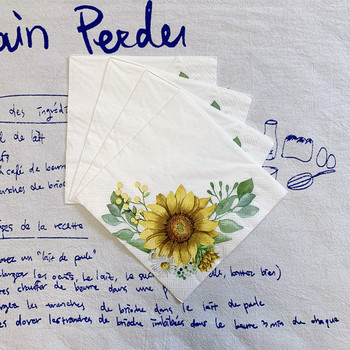 ain Perdu
des ingrédi
de lait
café de beurre
tranches de brioche
apes de la recette
un "lait de poule"
les oeufs, le lait, le suc de, battez bien)
chauffer du beurre dans une
les tranches de brioche dans le lait de poule
dorer les tranches de brioche imbibées dans le beurre 3 min de chaque